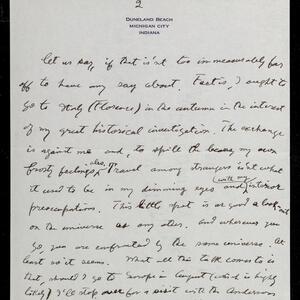 2
DUNELAND BEACH
MICHIGAN CITY
INDIANA
let us say, if that isn't too immeasurably far
off to have any say about. Fact is, I ought to
go to Italy (Florence) in the autumn in the interest
of my great historical investigation. The exchange
is against me and, to spill the beans, my own
frosty feelings, also. Travel among strangers isn't what
it used to be in my dimming eyes and (with my) interior
preoccupations. This little spot is as good a look-out
on the universe as any other. And wherever you
go, you are confronted by the same universe. At
least so it seems. What all this talk comes to is
that should I go to Europe in August (which is highly
likely) I'll stop over for a visit with the Andersons